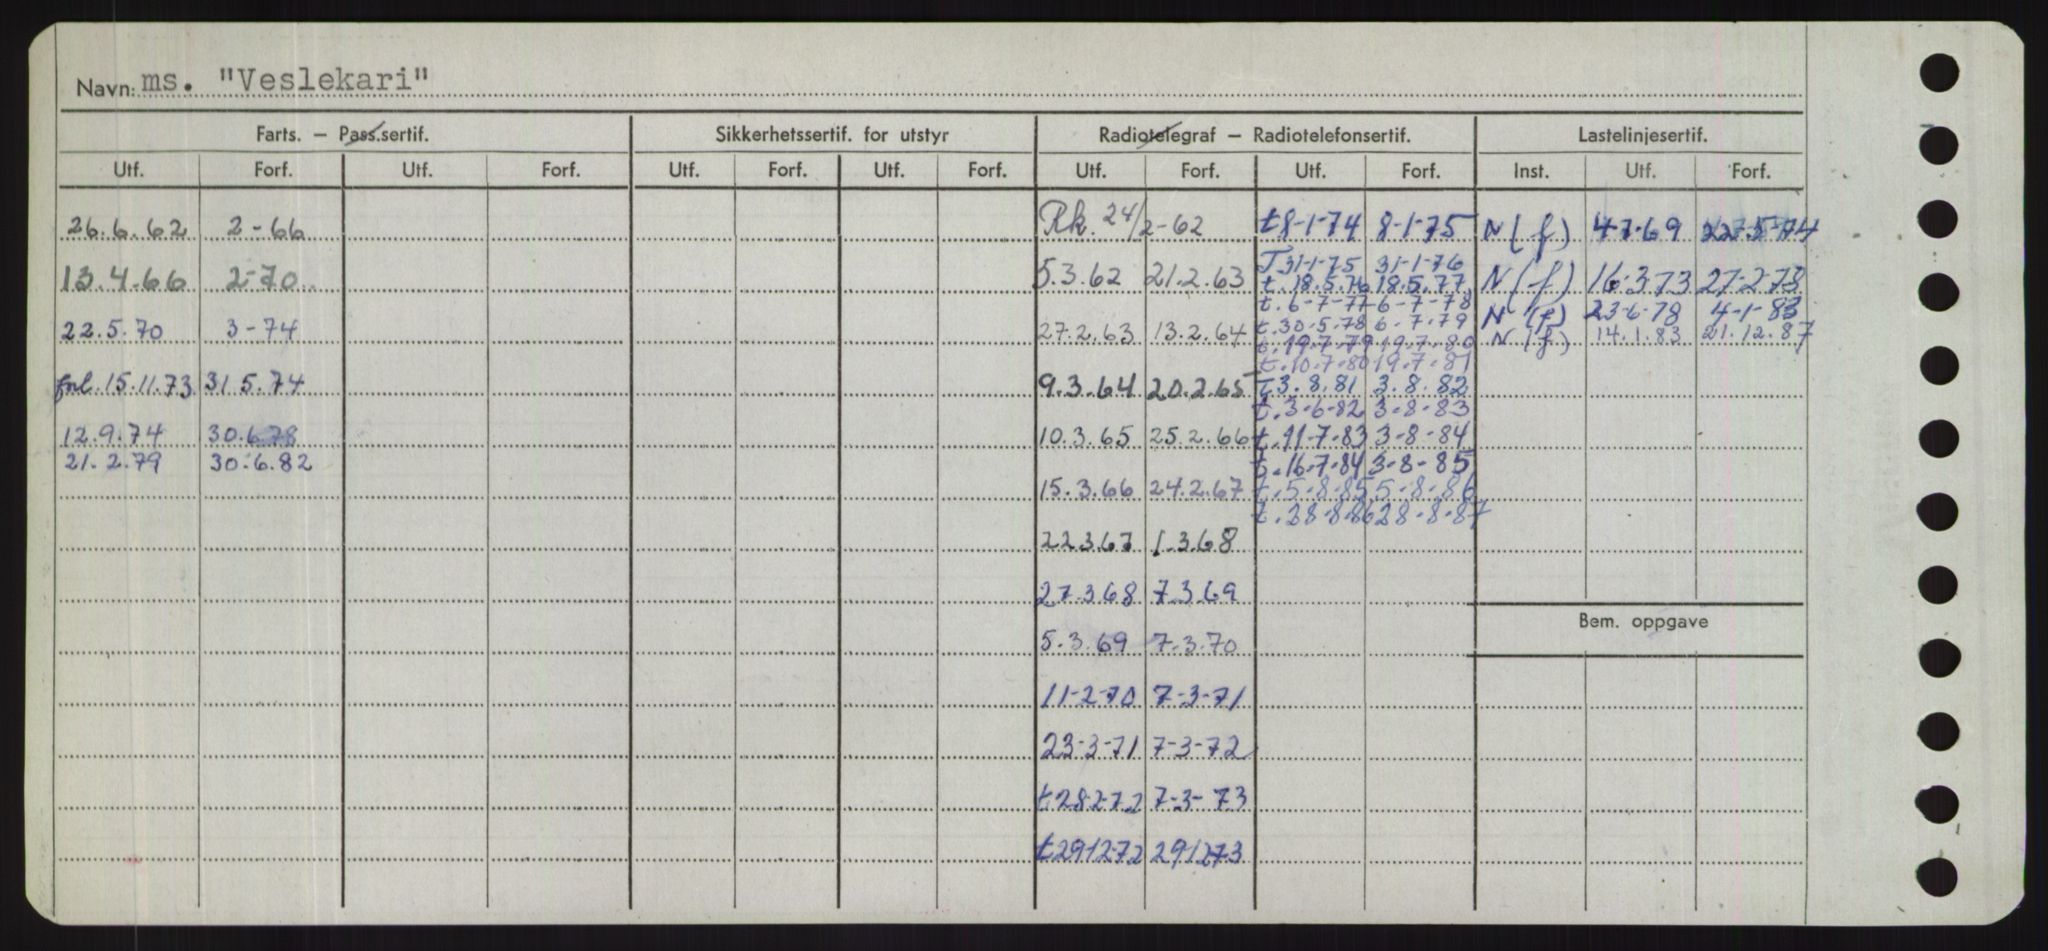 Navn: ms. "Veslekari"
Farts. – Pass.sertif. Sikkerhetssertif. for utstyr Radiotelegraf – Radiotelefonsertif. Lastelinjesertif.
Utf. Forf. Utf. Forf. Utf. Forf. Utf. Forf. Utf. Forf. Utf. Forf. Inst. Utf. Forf.
26.6.62 2-66 Rk. 24/2-62 t 8-1-74 8-1-75 N(f) 4-7-69
T 31-1-75 31-1-76
13.4.66 2-70 5.3.62 21.2.63 t.18.5.76 18.5.77 N(f) 16-3-73 27-2-73
t.6-7-77 6-7-78 N(f) 23-6-78 4-1-83
22.5.70 3-74 27.2.63 13.2.64 t.30.5.78 6.7.79 N(f) 14.1.83 21.12.87
t.19.7.79 19.7.80
t.10.7.80 19.7.81
forl. 15.11.73 31.5.74 9.3.64 20.2.65 T.3.8.81 3.8.82
t.3-6-82 3-8-83
12.9.74 30.6.78 10.3.65 25.2.66 t.11-7-83 3-8-84
21.2.79 30.6.82 t.16-7-84 3-8-85
15.3.66 24.2.67 t.5-8-85 5-8-86
t.28-8-86 28-8-87
22.3.67 1.3.68
27.3.68 7.3.69
Bem. oppgave
5.3.69 7.3.70
11-2-70 7-3-71
23-3-71 7-3-72
t 28-2-72 7-3-73
t 29.12.72 29.12.73